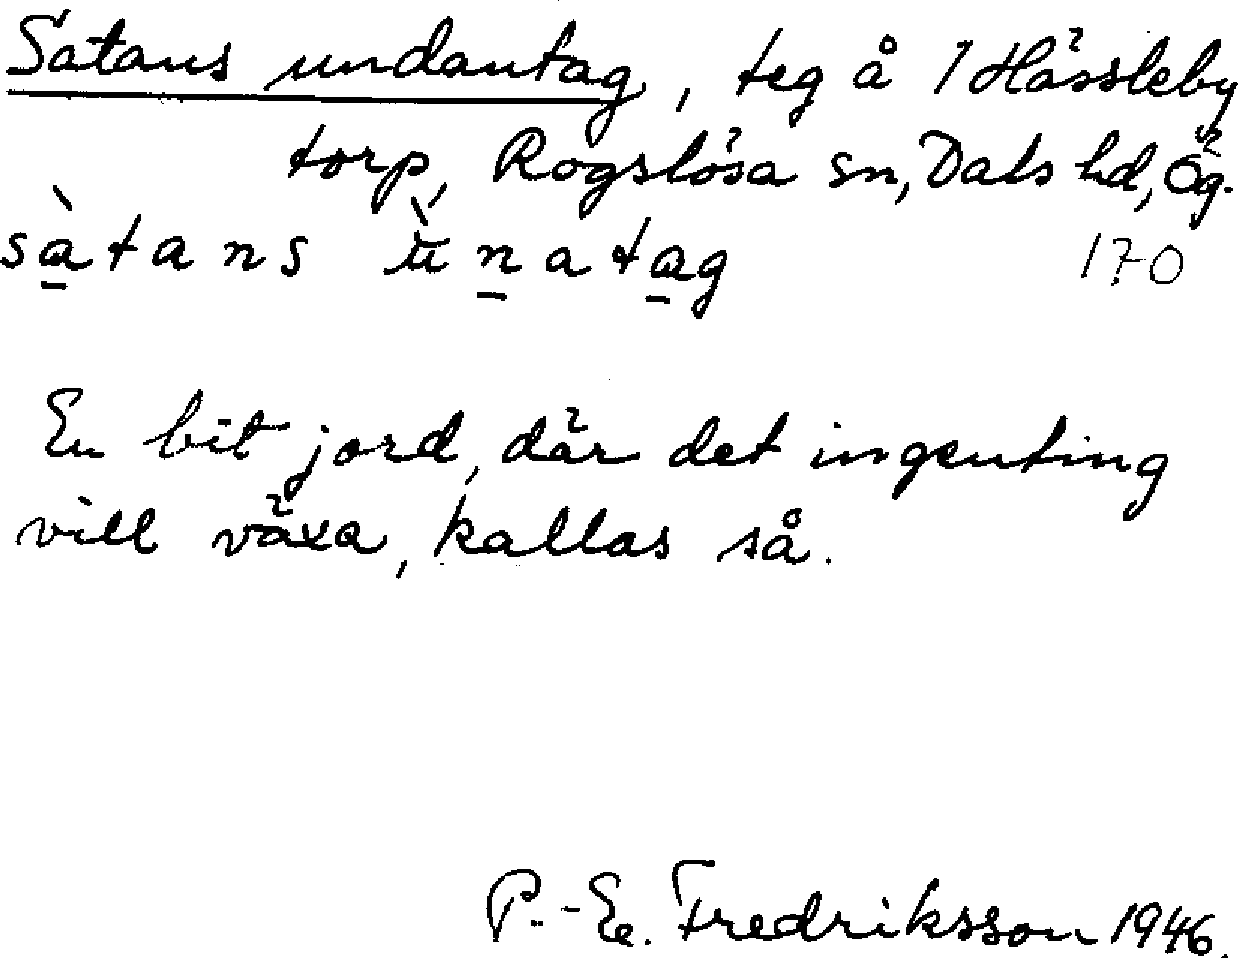 Satans undantag, teg å 1 Hässleby
torp, Rogslösa sn, Dals hd, Ög.
sàtans ùnatag 170
En bit jord, där det ingenting
vill växa, kallas så.
P.-E. Fredriksson 1946.